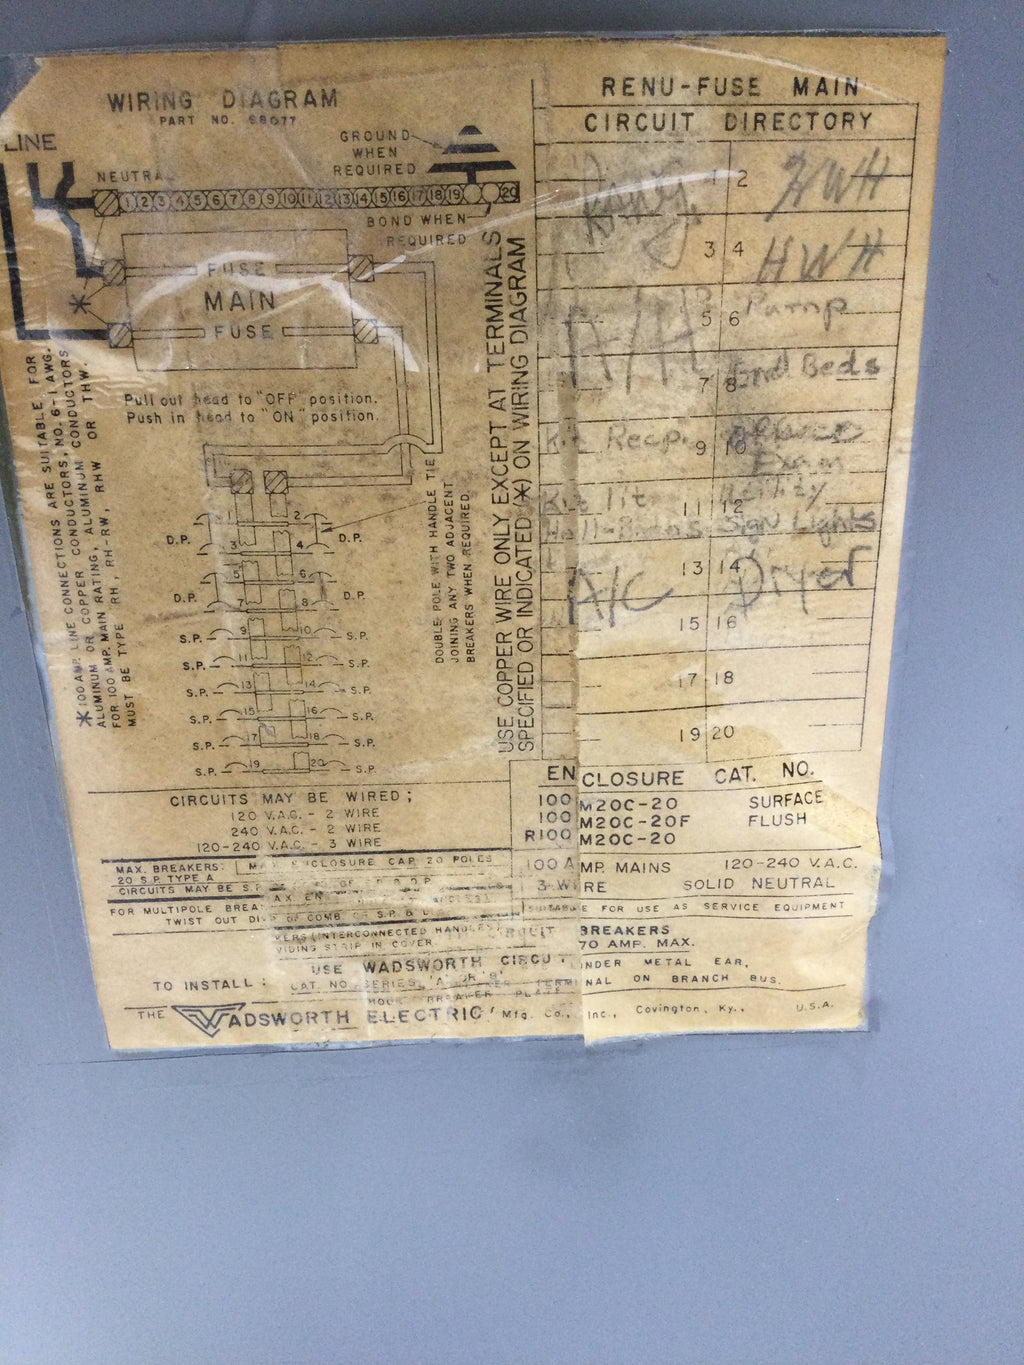 WIRING DIAGRAM
PART NO. 68077
LINE
NEUTRAL
GROUND
WHEN
REQUIRED
1 2 3 4 5 6 7 8 9 10 11 12 13 14 15 16 17 18 19 20
BOND WHEN
REQUIRED
FUSE
MAIN
FUSE
*
Pull out head to "OFF" position.
Push in head to "ON" position.
*100 AMP. LINE CONNECTIONS ARE SUITABLE FOR
ALUMINUM OR COPPER CONDUCTORS, NO. 6-1 AWG.
FOR 100 AMP. MAIN RATING, ALUMINUM CONDUCTORS
MUST BE TYPE RH, RH-RW, RHW OR THW.
1 2
D.P. 3 4 D.P.
5 6
D.P. 7 8 D.P.
S.P. 9 10 S.P.
S.P. 11 12 S.P.
S.P. 13 14 S.P.
S.P. 15 16 S.P.
S.P. 17 18 S.P.
S.P. 19 20 S.P.
DOUBLE POLE WITH HANDLE TIE
JOINING ANY TWO ADJACENT
BREAKERS WHEN REQUIRED.
USE COPPER WIRE ONLY EXCEPT AT TERMINALS
SPECIFIED OR INDICATED (*) ON WIRING DIAGRAM
CIRCUITS MAY BE WIRED;
120 V.A.C. - 2 WIRE
240 V.A.C. - 2 WIRE
120-240 V.A.C. - 3 WIRE
MAX. BREAKERS: ENCLOSURE CAP. 20 POLES
20 S.P. TYPE A
CIRCUITS MAY BE S.P.
FOR MULTIPOLE
TWIST OUT OF COMB OF S.P. &
(INTERCONNECTED HANDLES)
STRIP IN COVER.
TO INSTALL:
USE WADSWORTH
CAT. NO. SERIES
THE WADSWORTH ELECTRIC Mfg. Co., Inc., Covington, Ky., U.S.A.
RENU-FUSE MAIN
CIRCUIT DIRECTORY
Range 1 2 HWH
3 4 HWH
A/H 5 6 Pump
7 8 Beds
Kit Recp. 9 10
Exam
Kit lit 11 12 Utility
Hall-Sign Lights
A/C 13 14 Dryer
15 16
17 18
19 20
ENCLOSURE CAT. NO.
100 M20C-20 SURFACE
100 M20C-20F FLUSH
R100 M20C-20
100 AMP. MAINS 120-240 V.A.C.
3 WIRE SOLID NEUTRAL
SUITABLE FOR USE AS SERVICE EQUIPMENT
CIRCUIT BREAKERS
70 AMP. MAX.
UNDER METAL EAR,
TERMINAL ON BRANCH BUS.